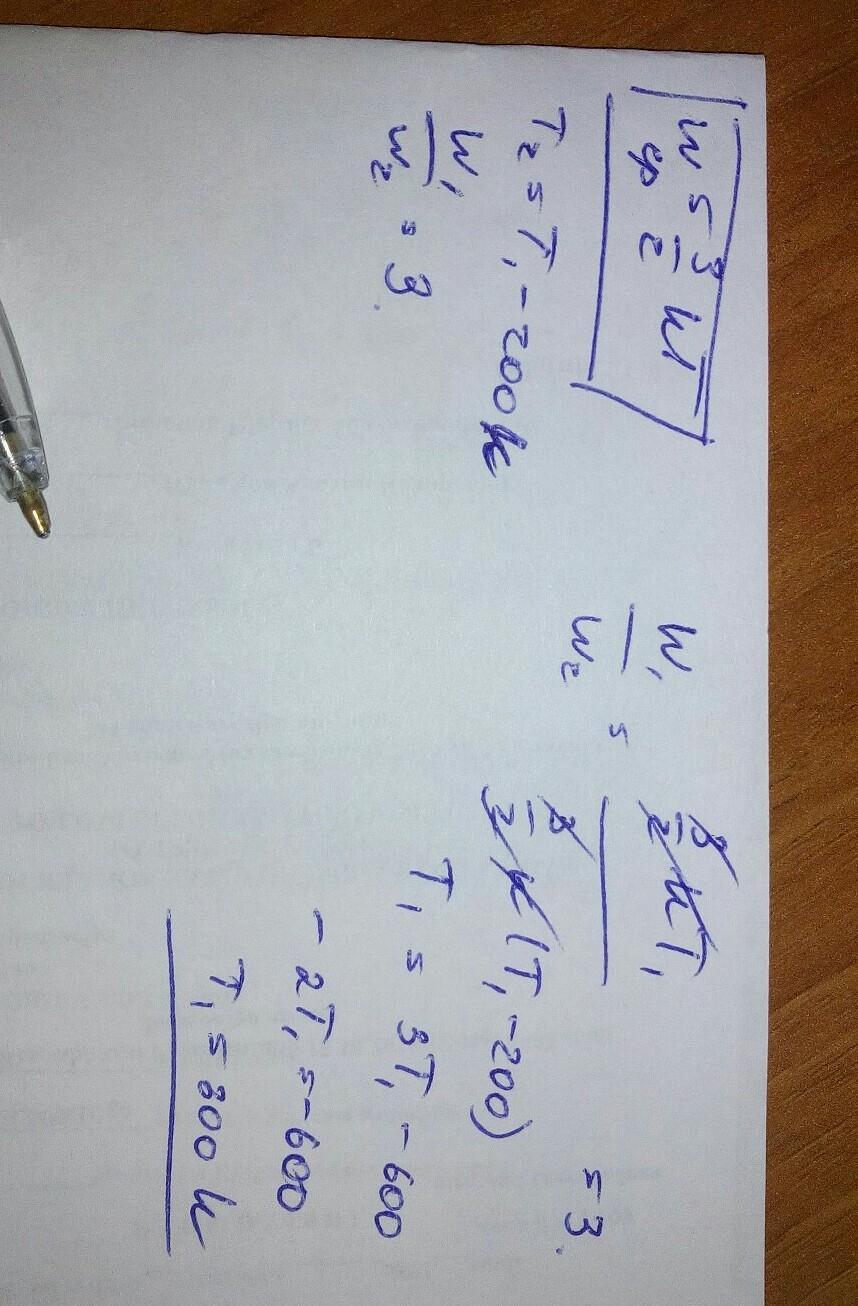 W = 3/2 kT
ср
T₂ = T₁ - 200k
W₁/W₂ = 3.
W₁/W₂ = 3/2 kT₁ / 3/2 k(T₁ - 200) = 3.
T₁ = 3T₁ - 600
- 2T₁ = - 600
T₁ = 300 k